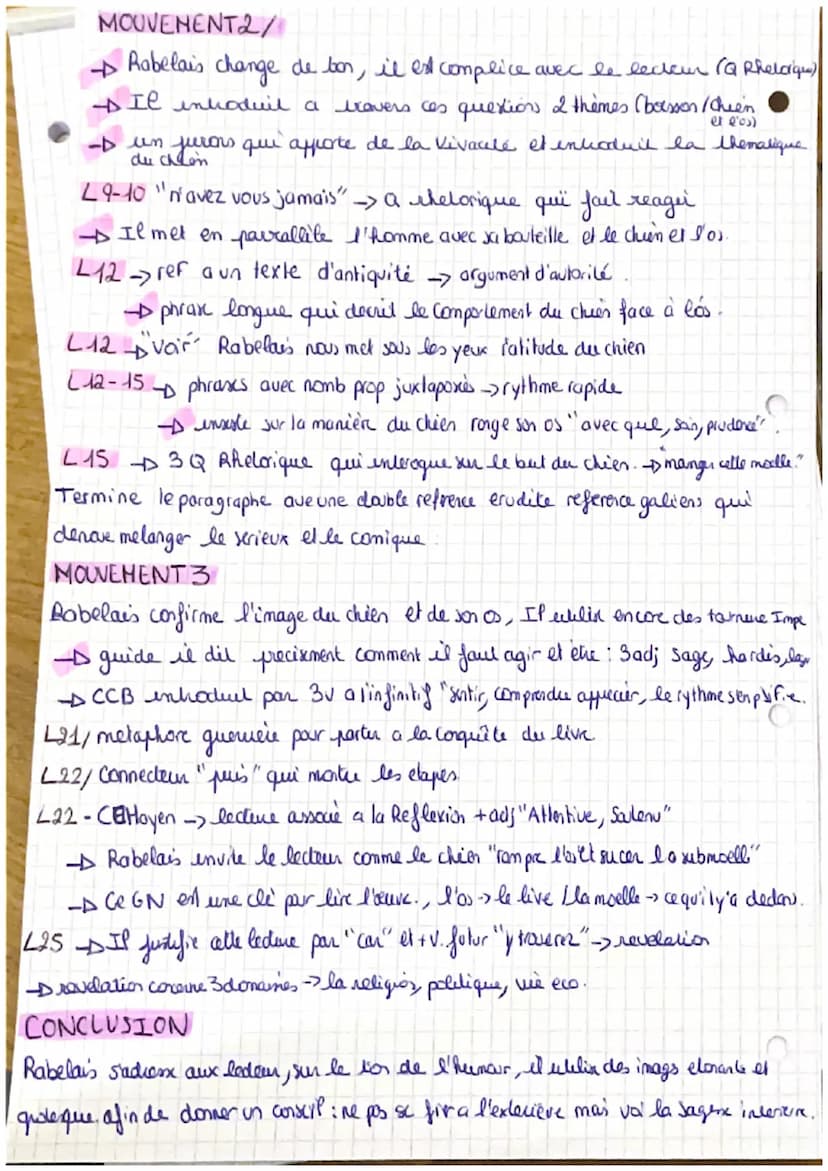 MOUVEMENT 2/
→ Rabelais change de ton, il est complice avec le lecteur (Q Rhetorique)
→ Il introduit a travers ces questions 2 thèmes (boisson / chien et l'os)
→ un jurons qui apporte de la vivacité et introduit la thematique
du chien
L9-10 "n'avez vous jamais" → Q rhetorique qui fait reagir
→ Il met en parrallèle l'homme avec sa bouteille et le chien et l'os.
L12 → ref a un texte d'antiquité → argument d'autorité.
→ phrase longue qui decrit le comportement du chien face à l'os.
L12 → "voir" Rabelais nous met sous les yeux l'atitude du chien
L12-15 → phrases avec nomb prop juxtaposés → rythme rapide
→ insiste sur la manièr du chien ronge son os "avec que, soin, prudence".
L15 → 3 Q Rhetorique qui interoque sur le but du chien. → "manger cette moelle."
Termine le paragraphe ave une double refrence erudite reference galiens qui
denove melanger le serieux et le comique.
MOUVEMENT 3
Rabelais confirme l'image du chien et de son os, Il utilise encore des tornure Impe
→ guide il dit precisment comment il faut agir et être : 3adj sage, hardis,
→ CCB introduit par 3v a l'infinitif "sentir, comprendre apprecier, le rythme s'emplifie.
L21/ metaphore guerrière pour partir a la conquête du livre
L22/ Connecteur "puis" qui montre les etapes
L22 - C Moyen → lecture associé a la Reflexion + adj "Attentive, Soutenu"
→ Rabelais invite le lecteur comme le chien "rompre l'os et sucer la submoell"
→ Ce GN est une clé par lire l'œuvre., l'os → le livre / la moelle → ce qu'il y'a dedans.
L25 → Il justifie cette lecture par "car" et + v. futur "y trouverez" → revelation
→ revelation concerne 3 domaines → la religion, politique, vie eco.
CONCLUSION
Rabelais s'adresse aux lecteur, sur le ton de l'humour, il utilise des images etonante et
grotesque. afin de donner un conseil : ne pas se fier a l'exterieure mais voi la sagesse interieure.